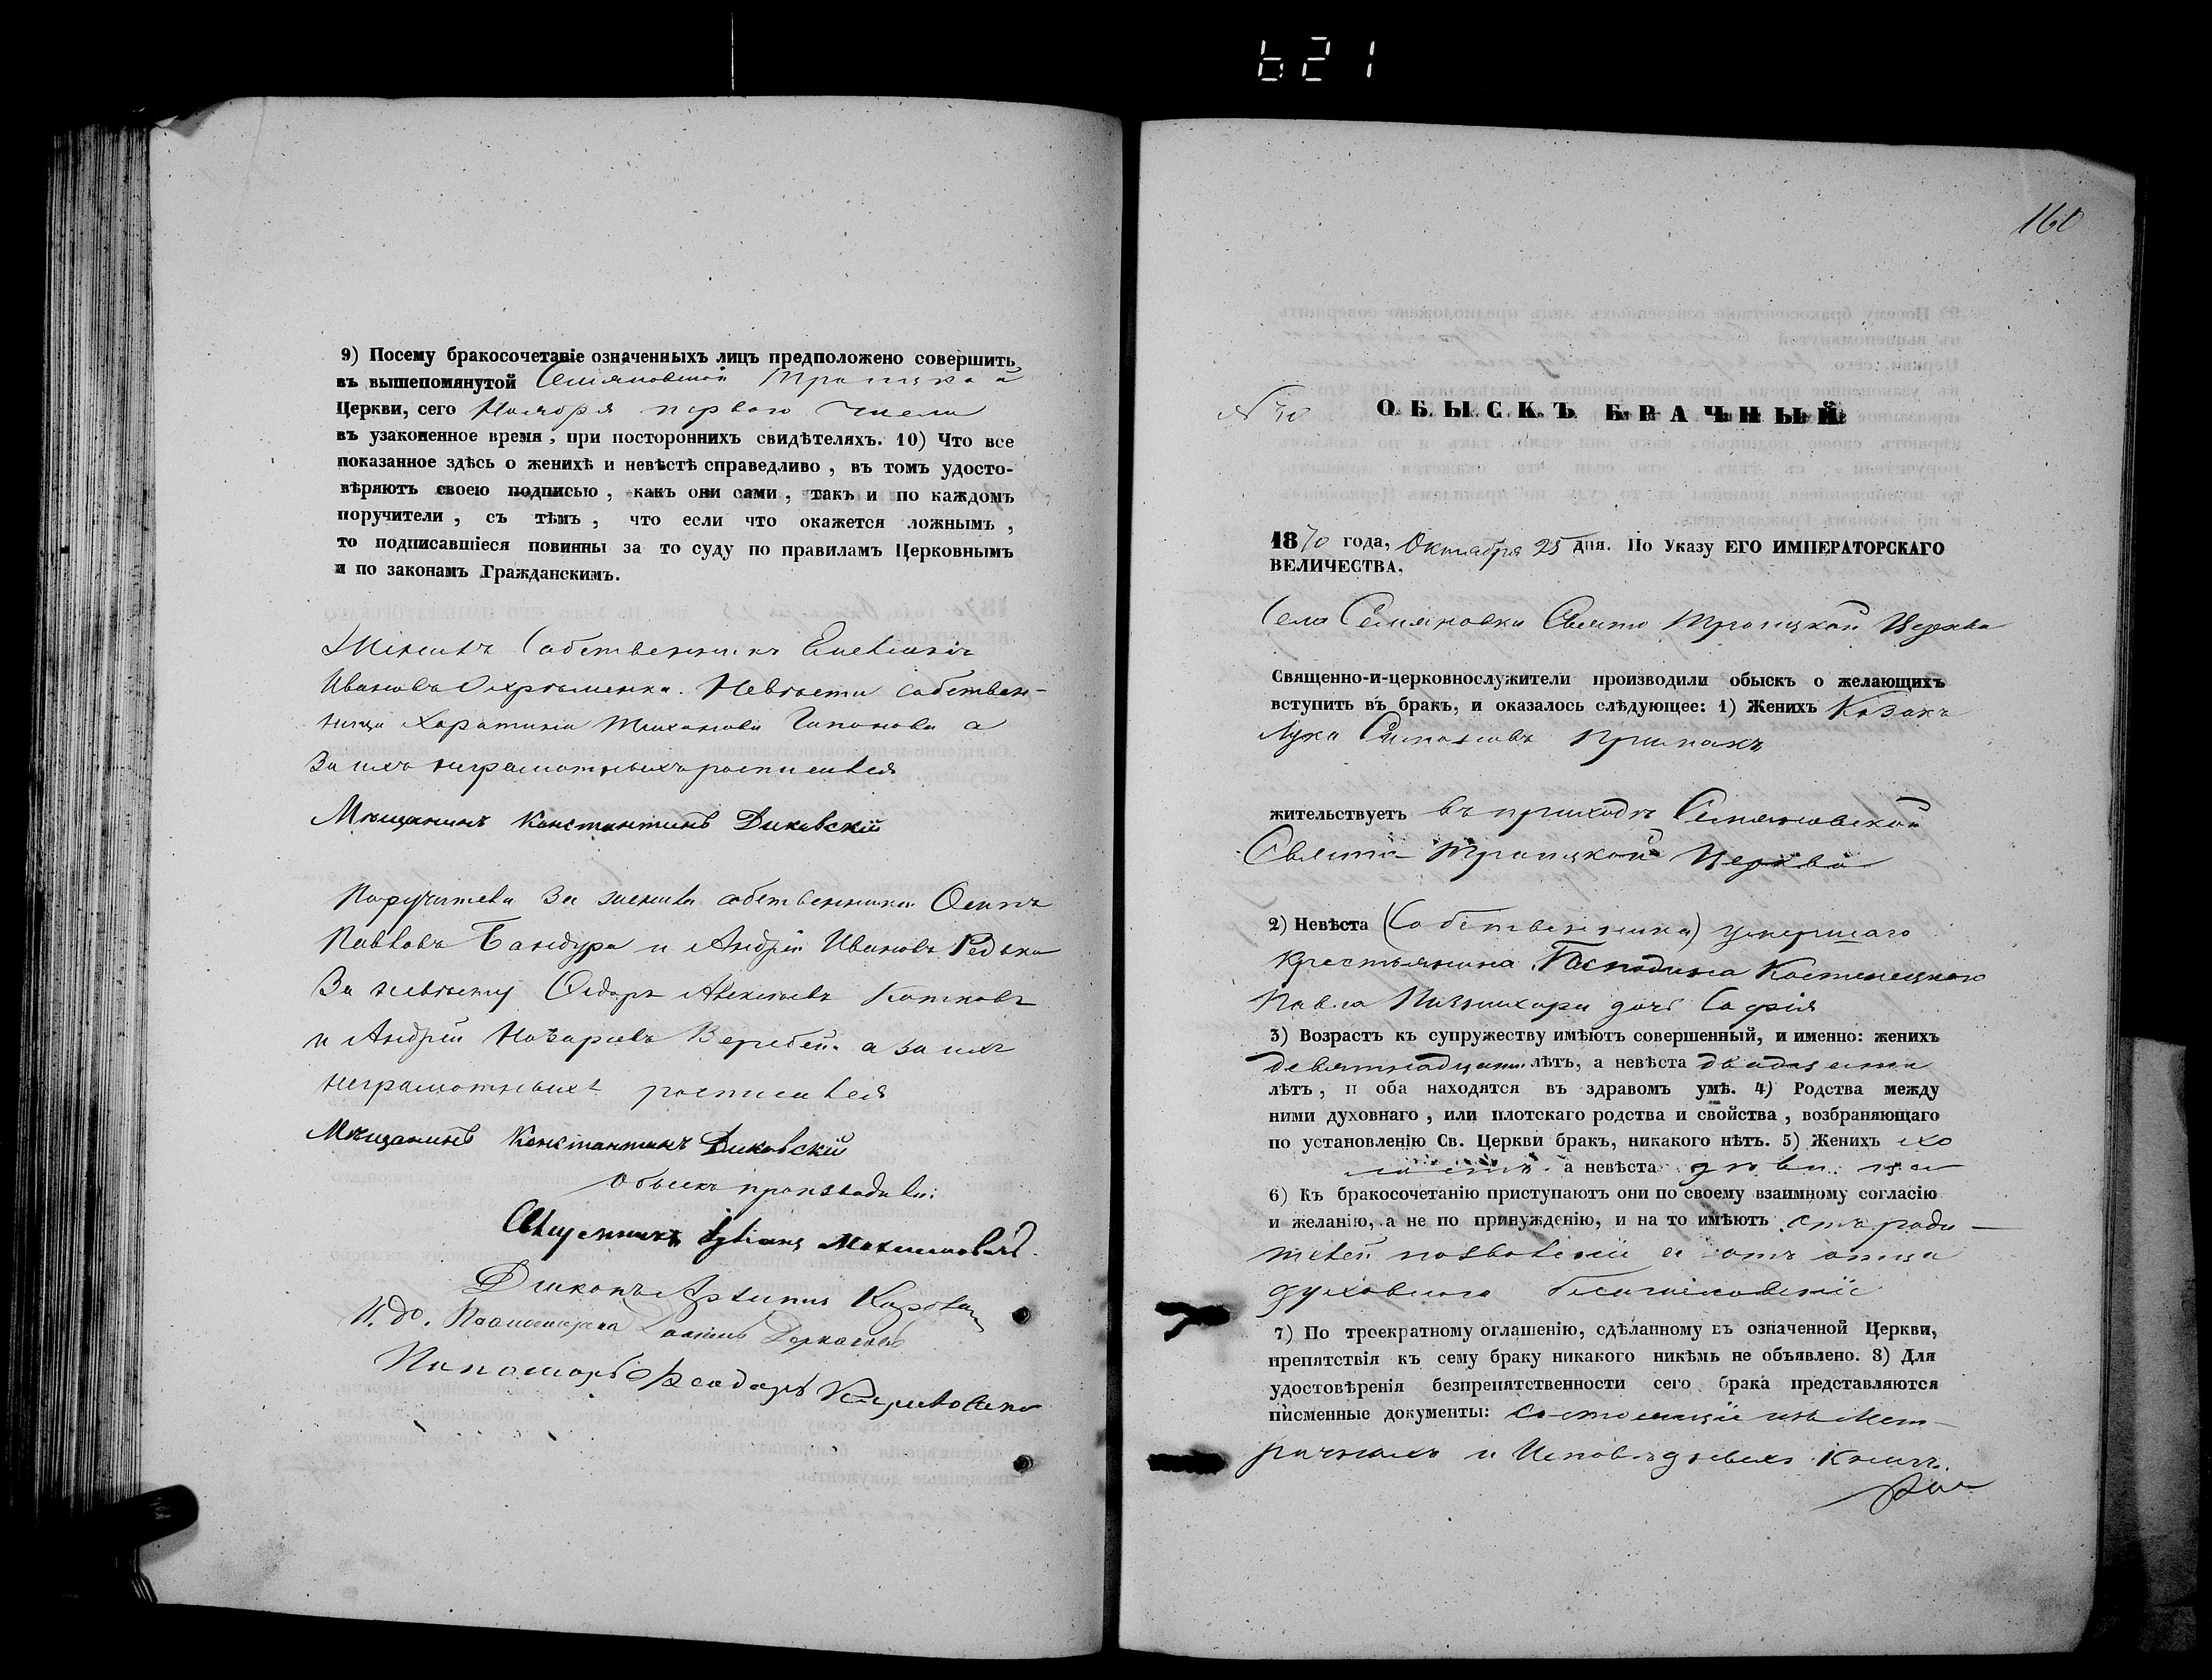 621
9) Посему бракосочетаніе означенныхъ лицъ предположено совершить
въ вышепомянутой Семяновской Троицкой
Церкви, сего Ноября первого числа
въ узаконенное время, при постороннихъ свидѣтеляхъ. 10) Что все
показанное здѣсь о женихѣ и невѣстѣ справедливо, въ томъ удосто-
вѣряютъ своею подписью, какъ они сами, такъ и по каждомъ
поручители, съ тѣмъ, что если что окажется ложнымъ,
то подписавшіеся повинны за то суду по правиламъ Церковнымъ
и по законамъ Гражданскимъ.
Женихъ Собственникъ
Ивановъ Невѣста собствен-
ница Гапонова а
За ихъ неграмотныхъ росписался
Мѣщанинъ Константинъ Диковскій
Поручители За жениха собственники Осипъ
Павловъ Бандура и Андрей Ивановъ Редька
За невѣсту Федоръ Алексѣевъ Котковъ
и Андрей Назаріевъ Веребей а за ихъ
неграмотныхъ росписался
Мѣщанинъ Константинъ Диковскій
Обыскъ производили:
Священникъ Максимовичъ
Диконъ
И. до. Псаломщика
Пономарь Феодоръ
160
№ 40
ОБЫСКЪ БРАЧНЫЙ
1870 года, Октября 25 дня. По Указу ЕГО ИМПЕРАТОРСКАГО
ВЕЛИЧЕСТВА.
Села Семяновки Свято Троицкой Церкви
Священно-и-церковнослужители производили обыскъ о желающихъ
вступить въ бракъ, и оказалось слѣдующее: 1) Женихъ Козакъ
Лука Примакъ
жительствуетъ въ приходѣ Семяновской
Свято Троицкой Церкви
2) Невѣста (Собственника) умершаго
Крестьянина Господина Костенецкого
Павла дочь Софія
3) Возрастъ къ супружеству имѣютъ совершенный, и именно: женихъ
девятнадцати лѣтъ, а невѣста двадцати
лѣтъ, и оба находятся въ здравомъ умѣ. 4) Родства между
ними духовнаго, или плотскаго родства и свойства, возбраняющаго
по установленію Св. Церкви бракъ, никакого нѣтъ. 5) Женихъ хо
лостъ а невѣста дѣвица
6) Къ бракосочетанію приступаютъ они по своему взаимному согласію
и желанію, а не по принужденію, и на то имѣютъ отъ роди-
телей позволеніе а отъ отца
духовного благословеніе
7) По троекратному оглашенію, сдѣланному въ означенной Церкви,
препятствія къ сему браку никакого никѣмъ не объявлено. 8) Для
удостовѣренія безпрепятственности сего брака представляются
писменные документы: состоящіе изъ Мет-
ричныхъ и Исповѣдныхъ Книгъ.